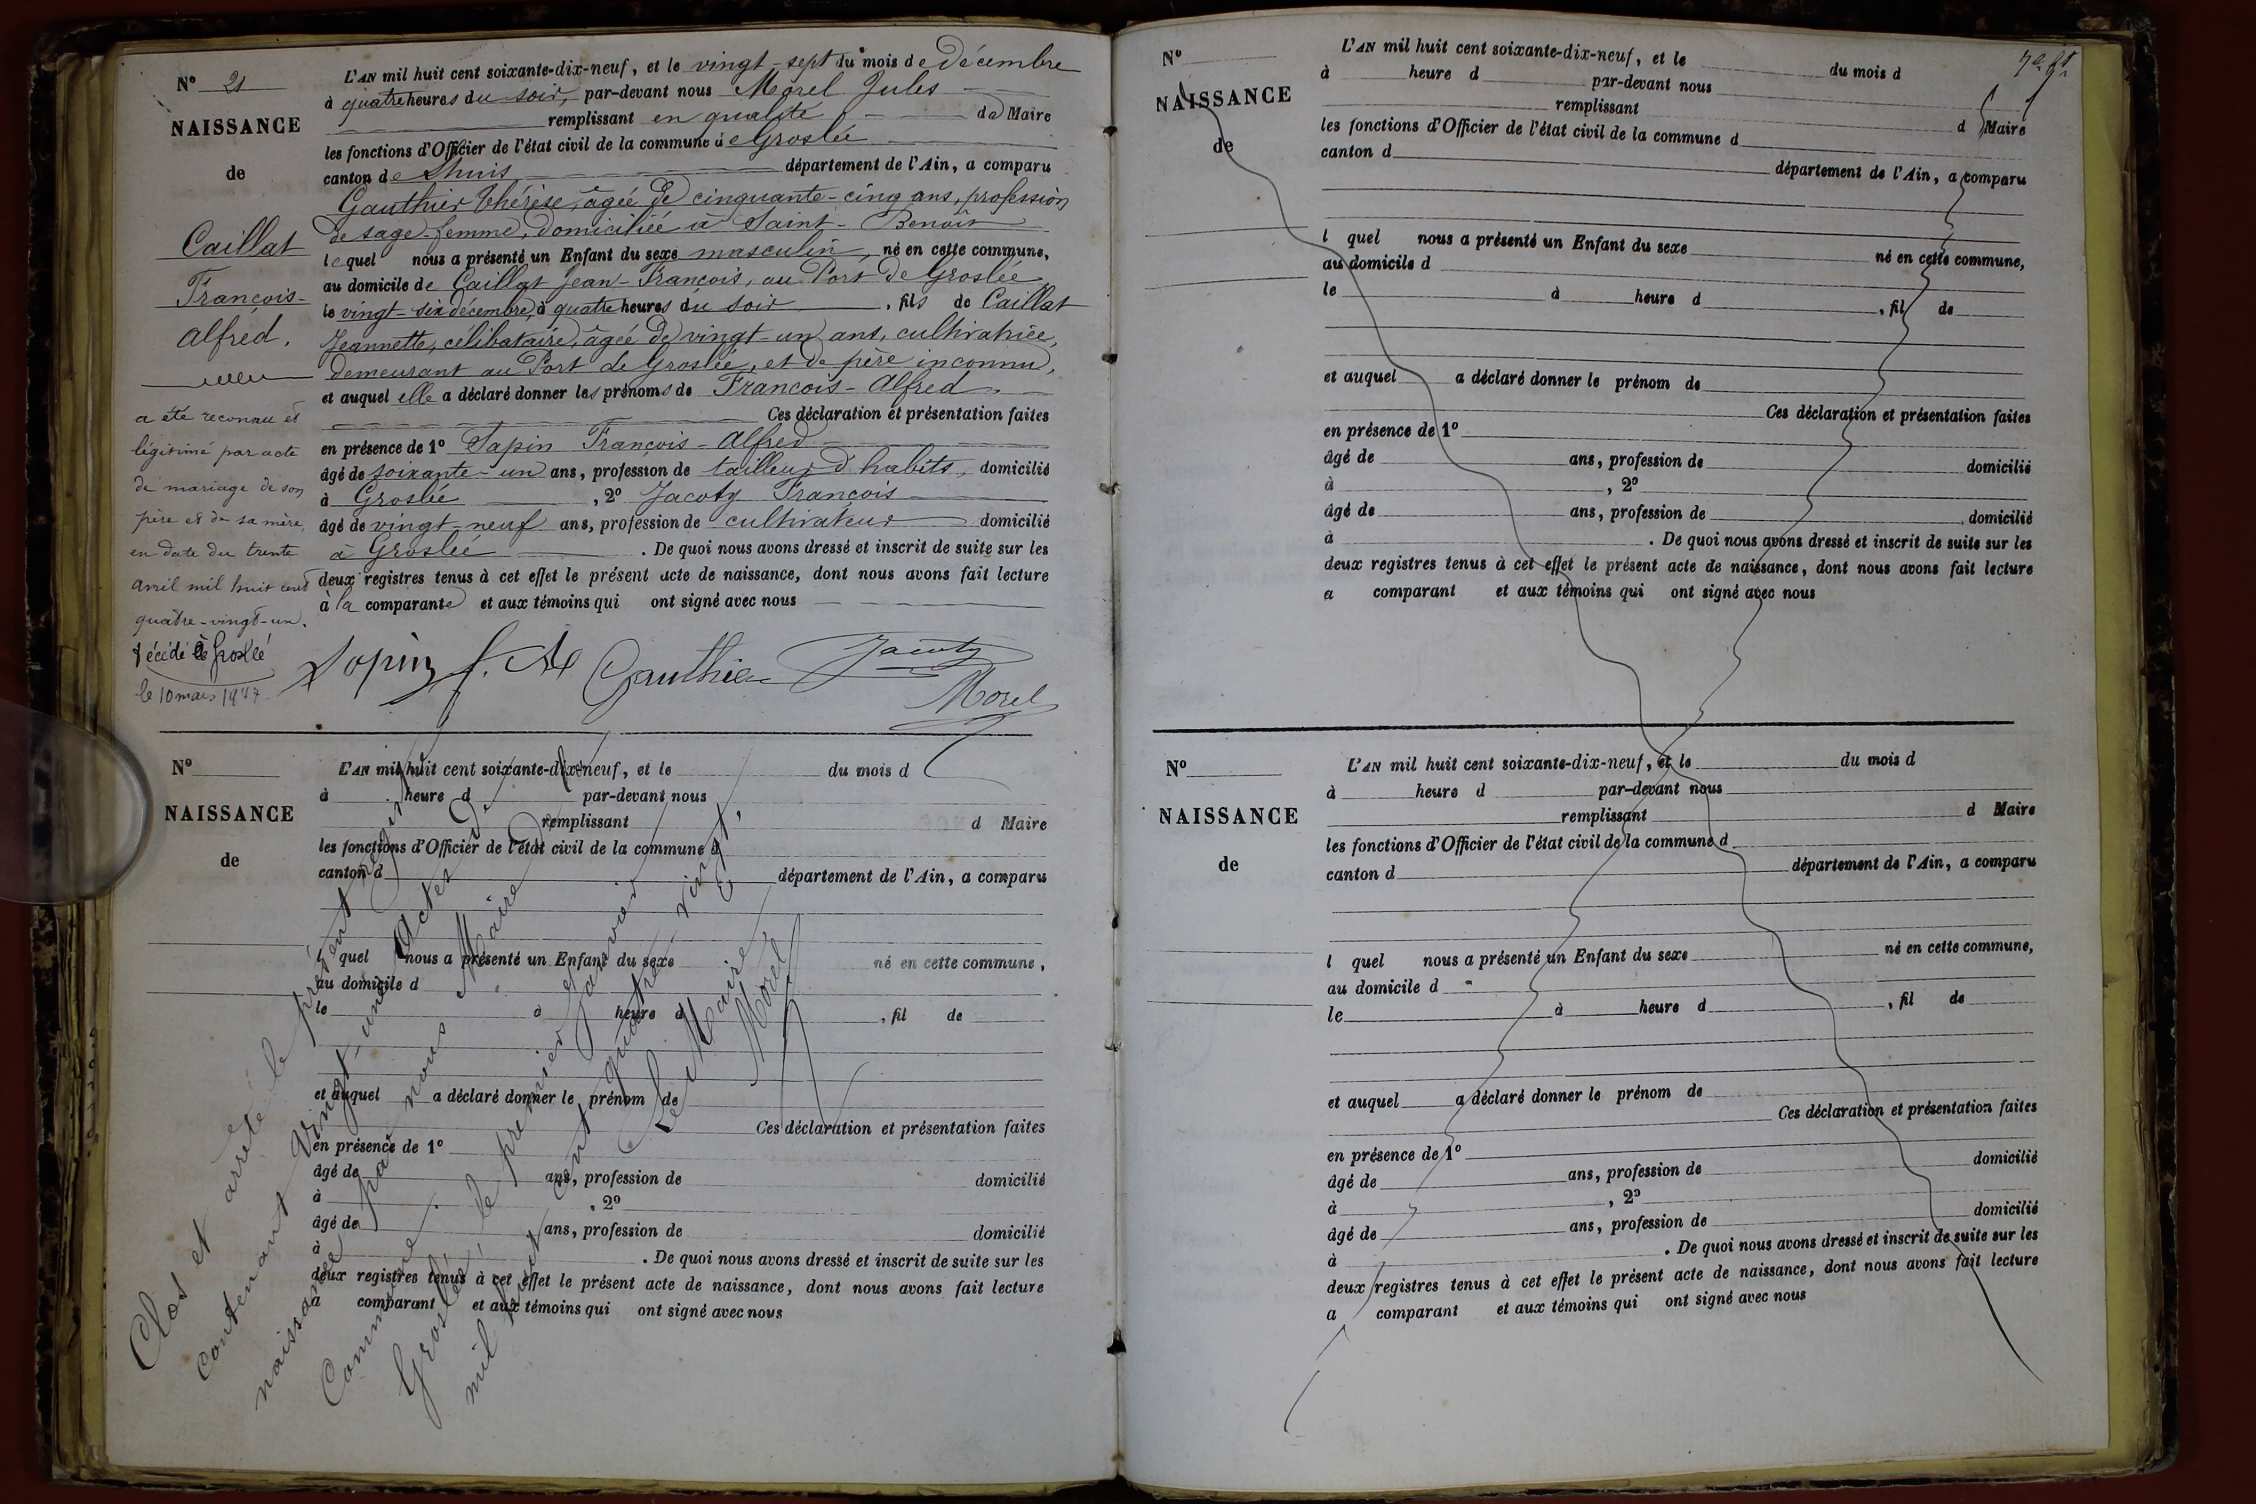 N° 21
NAISSANCE
de
Caillat
François-
Alfred.
a été reconnu et
légitimé par acte
de mariage de son
père et de sa mère,
en date du trente
avril mil huit cent
quatre-vingt-un.
Décédé à Groslée
le 10 mars 1947
L'AN mil huit cent soixante-dix-neuf, et le vingt-sept du mois de décembre
à quatre heures du soir, par-devant nous Morel Jules
remplissant en qualité de Maire
les fonctions d'Officier de l'état civil de la commune de Groslée
canton de Lhuis département de l'Ain, a comparu
Gauthier Thérèse, âgée de cinquante-cinq ans, profession
de sage-femme, domiciliée à Saint-Benoît
lequel nous a présenté un Enfant du sexe masculin, né en cette commune,
au domicile de Caillat Jean-François, au Port de Groslée
le vingt-six décembre, à quatre heures du soir, fils de Caillat
Jeannette, célibataire, âgée de vingt-un ans, cultivatrice,
demeurant au Port de Groslée, et de père inconnu,
et auquel elle a déclaré donner les prénoms de François-Alfred
Ces déclaration et présentation faites
en présence de 1° Sapin François-Alfred
âgé de soixante-un ans, profession de tailleur d'habits, domicilié
à Groslée, 2° Jacoty François
âgé de vingt-neuf ans, profession de cultivateur domicilié
à Groslée. De quoi nous avons dressé et inscrit de suite sur les
deux registres tenus à cet effet le présent acte de naissance, dont nous avons fait lecture
à la comparante et aux témoins qui ont signé avec nous
Sapin f. Al Gauthier Jacoty
Morel
N°
NAISSANCE
de
L'AN mil huit cent soixante-dix-neuf, et le du mois d
à heure d par-devant nous
remplissant d Maire
les fonctions d'Officier de l'état civil de la commune d
canton d département de l'Ain, a comparu
l quel nous a présenté un Enfant du sexe né en cette commune,
au domicile d
le à heure d , fil de
et auquel a déclaré donner le prénom de
Ces déclaration et présentation faites
en présence de 1°
âgé de ans, profession de domicilié
à , 2°
âgé de ans, profession de domicilié
à . De quoi nous avons dressé et inscrit de suite sur les
deux registres tenus à cet effet le présent acte de naissance, dont nous avons fait lecture
a comparant et aux témoins qui ont signé avec nous
Clos et arrêté le présent registre
contenant Vingt-une Actes de
naissance par nous Maire de la
Commune.
Groslée, le premier Janvier
mil huit cent quatre-vingt.
Le Maire,
Morel
N°
NAISSANCE
de
L'AN mil huit cent soixante-dix-neuf, et le du mois d
à heure d par-devant nous
remplissant d Maire
les fonctions d'Officier de l'état civil de la commune d
canton d département de l'Ain, a comparu
l quel nous a présenté un Enfant du sexe né en cette commune,
au domicile d
le à heure d , fil de
et auquel a déclaré donner le prénom de
Ces déclaration et présentation faites
en présence de 1°
âgé de ans, profession de domicilié
à , 2°
âgé de ans, profession de domicilié
à . De quoi nous avons dressé et inscrit de suite sur les
deux registres tenus à cet effet le présent acte de naissance, dont nous avons fait lecture
a comparant et aux témoins qui ont signé avec nous
N°
NAISSANCE
de
L'AN mil huit cent soixante-dix-neuf, et le du mois d
à heure d par-devant nous
remplissant d Maire
les fonctions d'Officier de l'état civil de la commune d
canton d département de l'Ain, a comparu
l quel nous a présenté un Enfant du sexe né en cette commune,
au domicile d
le à heure d , fil de
et auquel a déclaré donner le prénom de
Ces déclaration et présentation faites
en présence de 1°
âgé de ans, profession de domicilié
à , 2°
âgé de ans, profession de domicilié
à . De quoi nous avons dressé et inscrit de suite sur les
deux registres tenus à cet effet le présent acte de naissance, dont nous avons fait lecture
a comparant et aux témoins qui ont signé avec nous